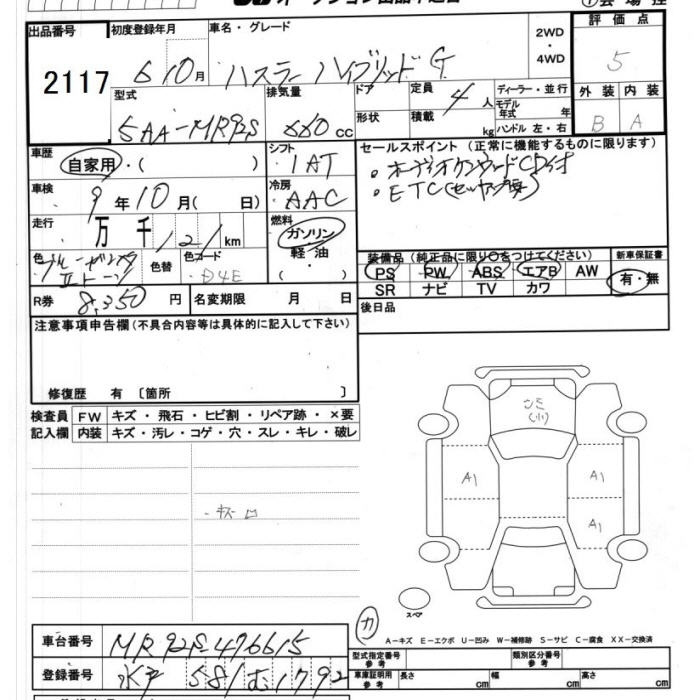 出品番号 初度登録年月 車名・グレード 2WD・4WD 評価点
2117 6 10月 ハスラー ハイブリッド G 5
型式 排気量 ドア 定員 ディーラー・並行 外装 内装
5AA-MR92S 660cc 形状 積載 4人 kg モデル年式 年 ハンドル 左・右 B A
車歴 シフト セールスポイント(正常に機能するものに限ります)
自家用・( ) 1AT ・オーディオ CD付
車検 冷房 ・ETC
9年10月( 日) AAC
走行 燃料
万 千 121km ガソリン・軽油・( )
色 色替 色コード 装備品(純正品に限り○をつけてください) 新車保証書
IIトーン D4E PS PW ABS エアB AW 有・無
R券 8,350円 名変期限 月 日 SR ナビ TV カワ
注意事項申告欄(不具合内容等は具体的に記入して下さい) 後日品
修復歴 有 〔箇所 〕
検査員 FW キズ・飛石・ヒビ割・リペア跡・×要
記入欄 内装 キズ・汚レ・コゲ・穴・スレ・キレ・破レ
A1 A1
A1
・キズ ロ
スペア
カ
A-キズ E-エクボ U-凹み W-補修跡 S-サビ C-腐食 XX-交換済
車台番号 MR92S-476615 型式指定番号 参考 類別区分番号 参考
登録番号 水戸 581む1792 車庫証明用 参考 長さ cm 幅 cm 高さ cm